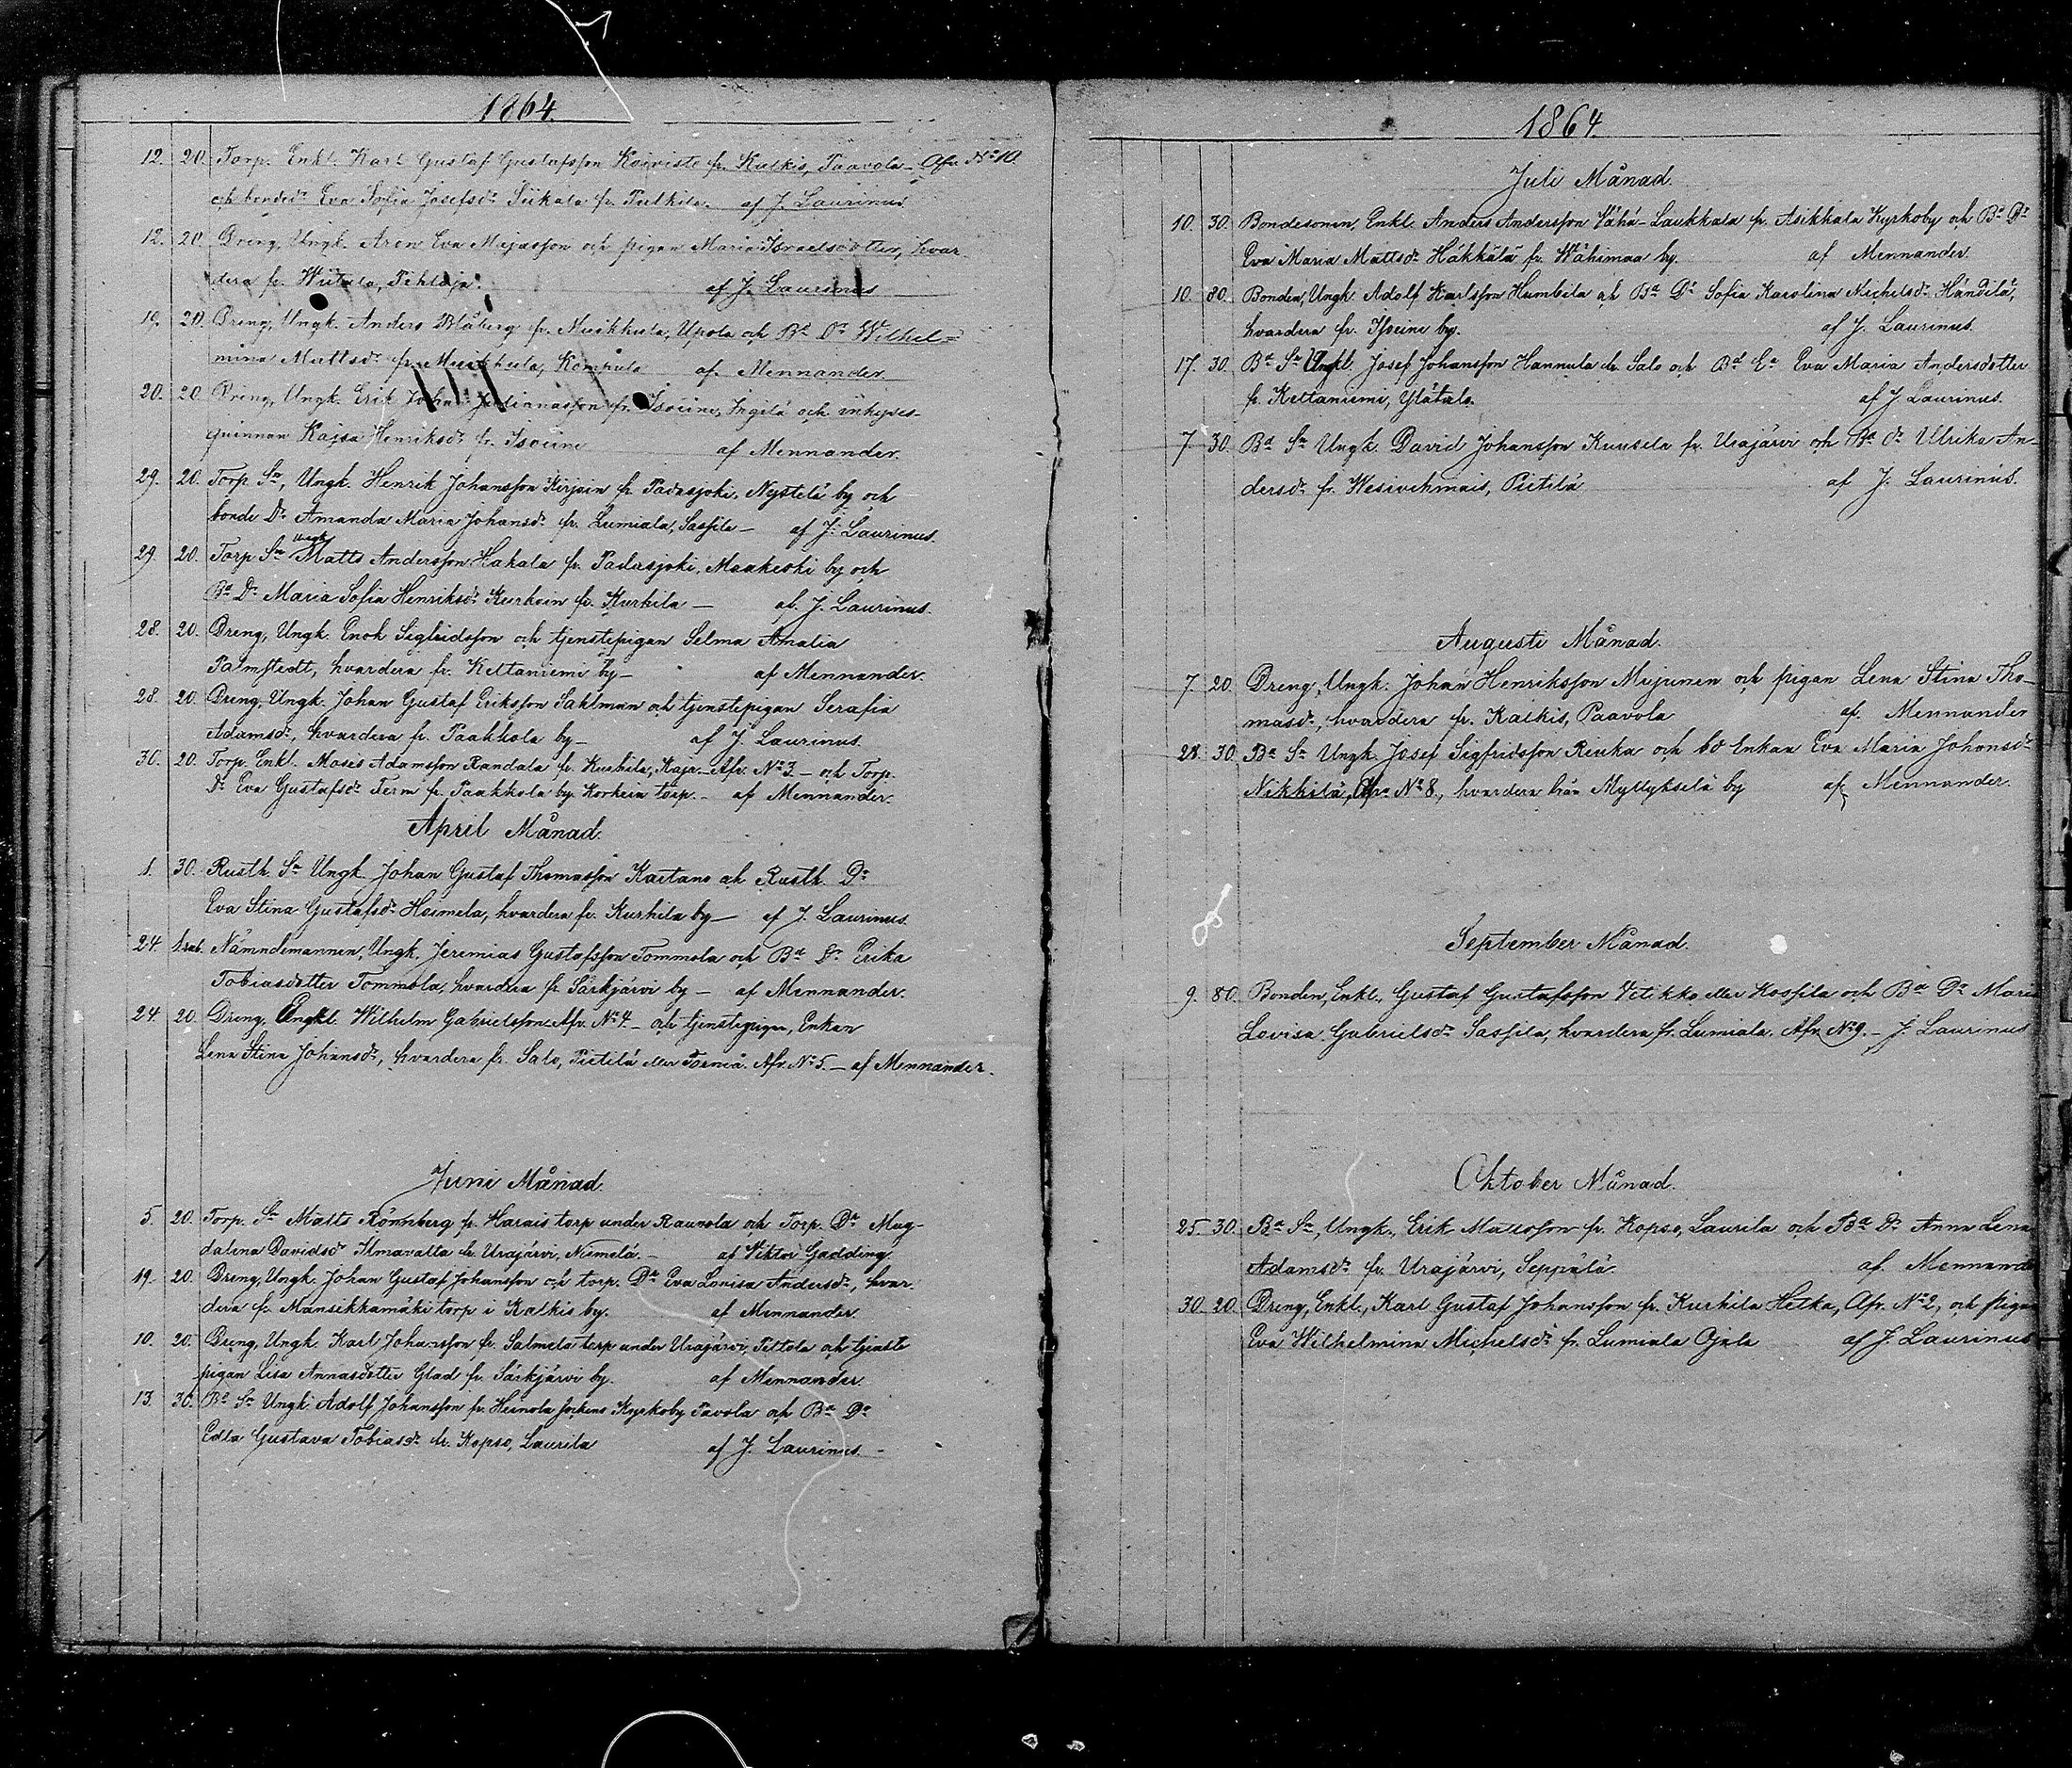 1864.
12. 20. Torp. Enkl. Karl Gustaf Gustafsson Koivisto fr. Kalkis, Paavola - Afr. No 10.
och bondedr Eva Sofia Josefsdr Siikala fr. Pulkila. af J. Laurinus
12. 20 Dreng, Ungk. Aron Eva Majasson och pigan Maria Israelsdotter, hvar-
dera fr. Wiitala, af J. Laurinus
19. 20. Dreng, Ungk. Anders Blåberg fr. Muikkula, Upola och Bd Dr Wilhel-
mina Mattsdr fr. Muikkula, Kompula af Mennander
20. 20 Dreng, Ungk. Erik Johan Julianasson fr. Isoeine, Ingilä och inhyses-
quinnan Kajsa Henriksdr fr. Isoeine af Mennander.
29. 20. Torp Sn, Ungk. Henrik Johansson Kirjoin fr. Padasjoki, Nystelä by och
bonde Dr Amanda Maria Johansdr fr. Lumiala, Sassila - af J. Laurinus.
29. 20. Torp Sn Ungk Matts Andersson Hakala fr. Padasjoki, Maakeski by och
Bd Dr Maria Sofia Henriksdr Kurkoin fr. Kurkila - af. J. Laurinus.
28. 20. Dreng, Ungk. Enok Sigfridsson och tjenstepigan Selma Amalia
Palmstedt, hvardera fr. Keltaniemi by - af Mennander.
28. 20 Dreng, Ungk. Johan Gustaf Eriksson Sahlman och tjenstepigan Serafia
Adamsdr, hvardera fr. Paakkola by - af J. Laurinus.
30. 20. Torp. Enkl. Moses Adamsson Randala fr. Kurkila, Kaja - Afr. No 3. - och Torp.
Dr Eva Gustafsdr Term fr. Paakkola by Korkeia torp. - af Mennander.
April Månad.
1. 30. Rusth. Sn Ungk Johan Gustaf Thomasson Kartano och Rusth. Dr
Eva Stina Gustafsdr Heimela, hvardera fr. Kurkila by - af J. Laurinus.
24. 1 rub. Nämndemannen, Ungk. Jeremias Gustafsson Tommola och Bd Dr Erika
Tobiasdotter Tommola, hvardera fr. Särkjärvi by - af Mennander.
24. 20 Dreng, Enkl. Wilhelm Gabrielsson Afr. No 4. - och tjenstepigan, Enkan
Lena Stina Johansdr, hvardera fr. Salo, Pietilä eller Torniä. Afr. No 5. - af Mennander.
Juni Månad.
5. 20. Torp. Sn Matts Rönnberg fr. Harais torp under Raunola och Torp. Dr Mag-
dalena Davidsdr Ilmavalta fr. Urajärvi, Niemelä. - af Viktor Gadding
19. 20. Dreng, Ungk. Johan Gustaf Johansson och torp. Dr Eva Lovisa Andersdr, hvar-
dera fr. Mansikkamäki torp i Kalkis by. af Mennander.
10. 20. Dreng, Ungk. Karl Johansson fr. Salmela torp under Urajärvi, Pettola och tjenste
pigan Lisa Annasdotter Glad fr. Särkjärvi by. af Mennander.
13. 30. Bd Sn Ungk. Adolf Johansson fr. Heinola Sockens Kyrkoby Pavola och Bd Dr
Edla Gustava Tobiasdr fr. Kopso, Laurila af J. Laurinus. -
1864
Juli Månad.
10. 30. Bondesonen, Enkl. Anders Andersson Vähä-Laukkala fr. Asikkala Kyrkoby och Bd Dr
Eva Maria Mattsdr Häkkälä fr. Wähimaa by. af Mennander.
10. 80. Bonden, Ungk. Adolf Karlsson Humbila och Bd Dr Sofia Karolina Michelsdr Händilä,
hvardera fr. Isoeine by. af J. Laurinus.
17. 30. Bd Sn Ungk. Josef Johansson Hannula fr. Salo och Bd Ea Eva Maria Andersdotter
fr. Keltaniemi, Ylätalo. af J Laurinus.
7. 30. Bd Sn Ungk. David Johansson Kuusela fr. Urajärvi och Bd Dr Ulrika An-
dersdr fr. Wesivehmais, Pietilä af J. Laurinus.
Augusti Månad.
7. 20. Dreng, Ungk. Johan Henriksson Mujunen och pigan Lena Stina Tho-
masdr, hvardera fr. Kalkis, Paavola af. Mennander
28. 30. Bd Sn Ungk. Josef Sigfridsson Rinka och bd Enkan Eva Maria Johansdr
Nikkilä, Afr. No 8, hvardera från Myllykselä by af Mennander.
September Månad.
9. 80. Bonden, Enkl., Gustaf Gustafsson Vitikko eller Kossila och Bd Dr Maria
Lovisa Gabrielsdr Sassila, hvardera fr. Lumiala. Afr. No 9. - J. Laurinus
Oktober Månad.
25. 30. Bd Sn, Ungk., Erik Matsson fr. Kopso, Laurila och Bd Dr Anna Lena
Adamsdr fr. Urajärvi, Seppälä af. Mennande
30. 20. Dreng, Enkl., Karl Gustaf Johansson fr. Kurkila Heika, Afr. No 2, och pigan
Eva Wilhelmina Michelsdr fr. Lumiala Ojala af J. Laurinus